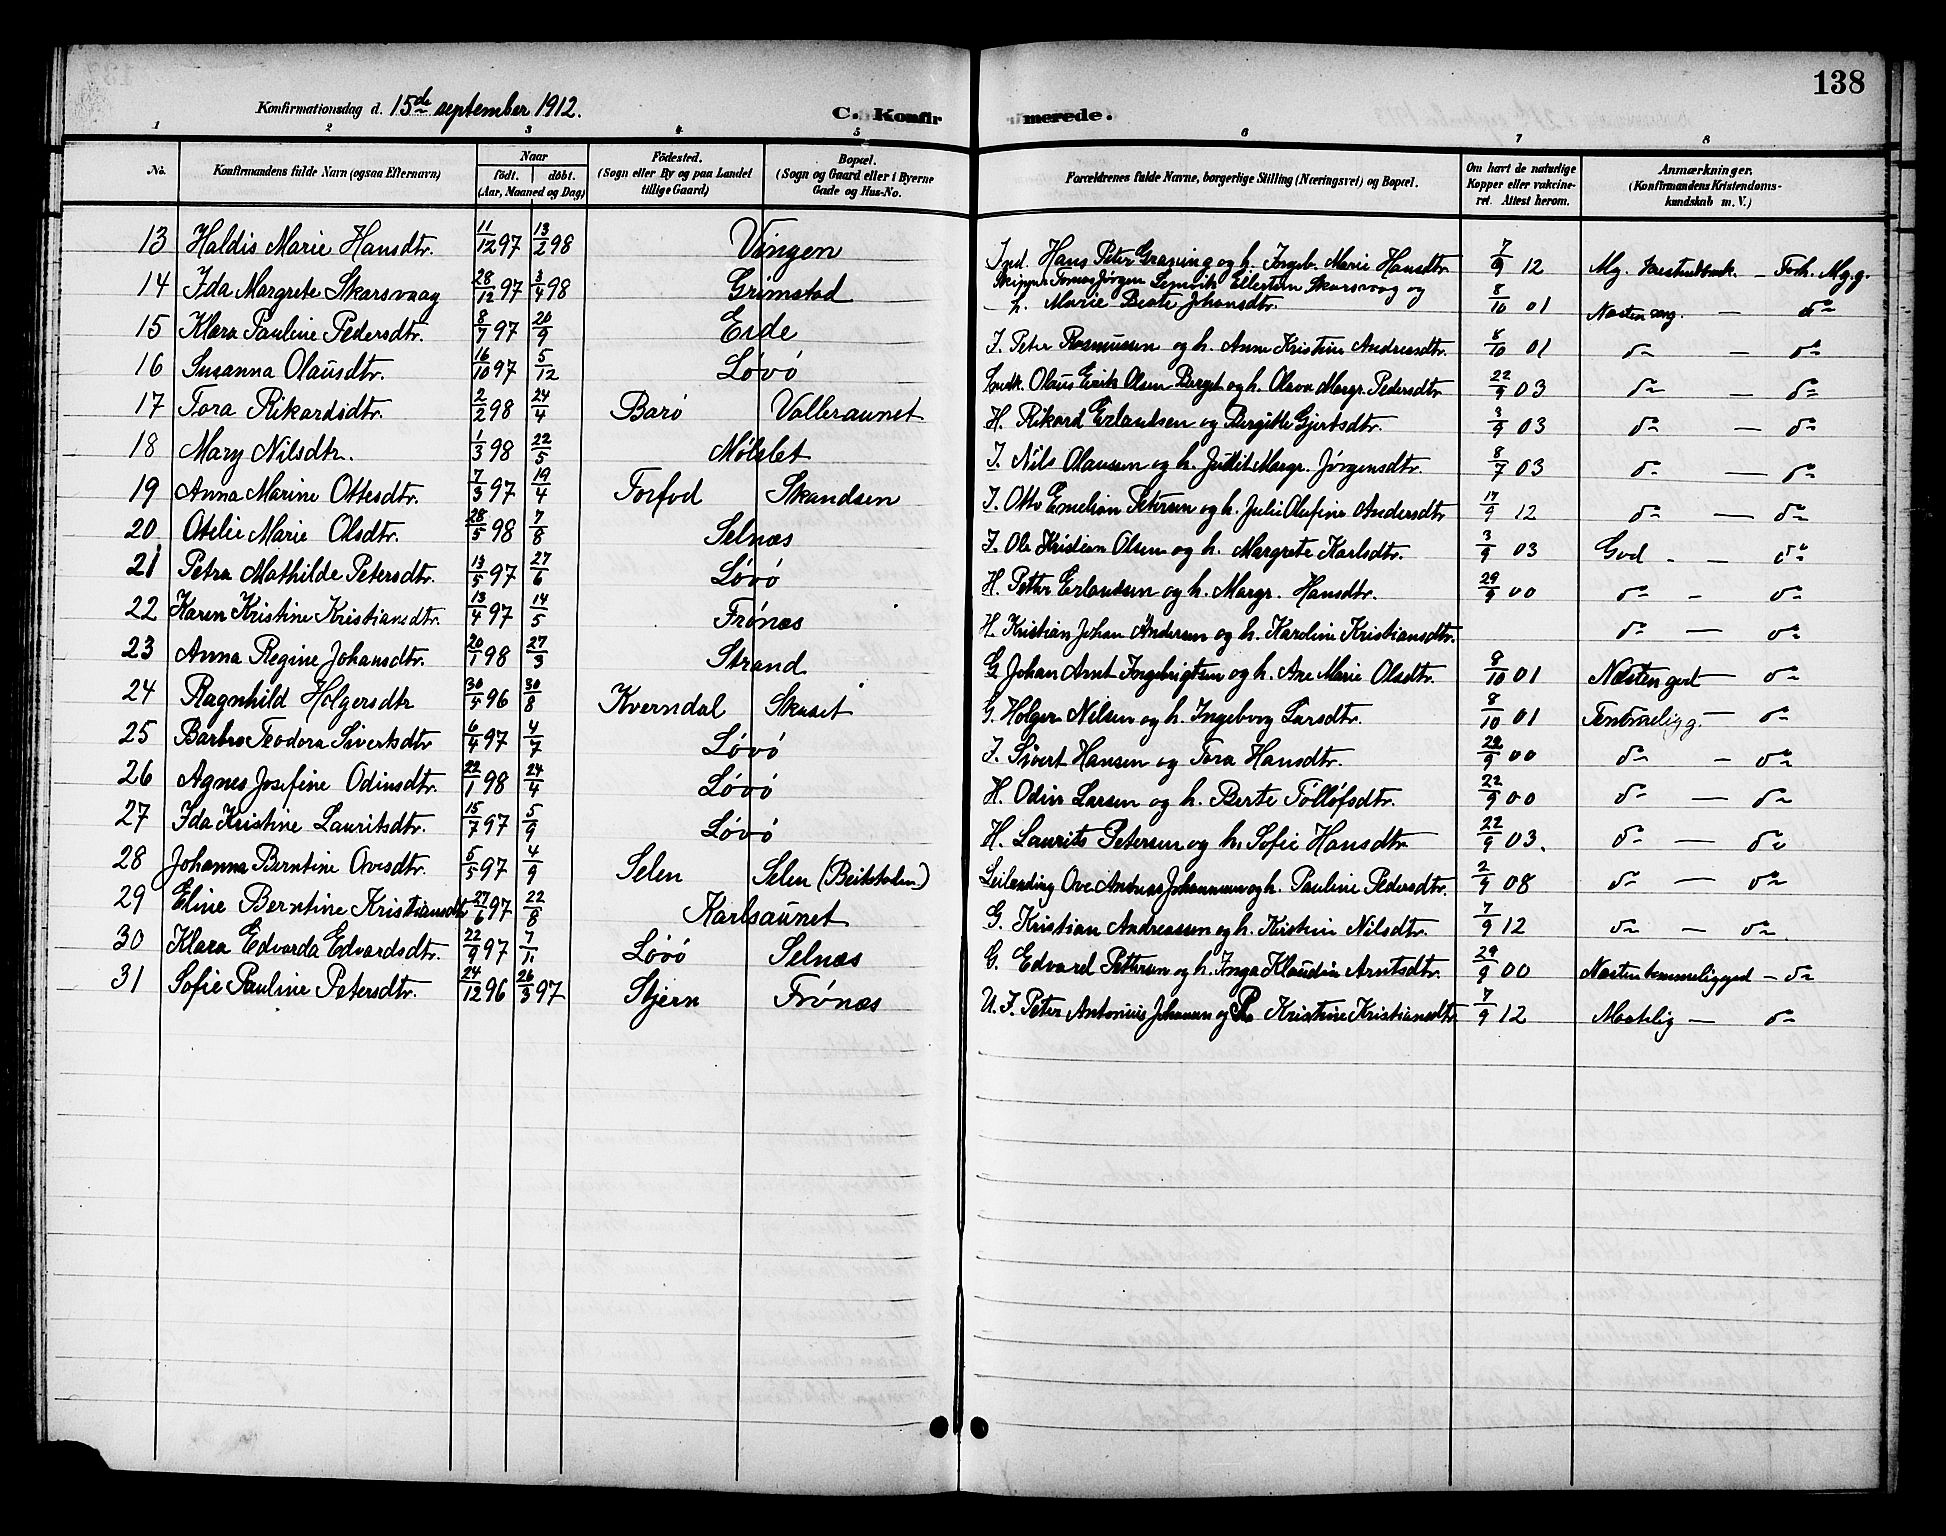 138
Konfirmationsdag d. 15de september 1912.
C. Konfirmerede.
1 2 3 4 5 6 7 8
No.
Konfirmandens fulde Navn (ogsaa Efternavn)
Naar
födt. döbt.
(Aar, Maaned og Dag)
Födested.
(Sogn eller By og paa Landet
tillige Gaard)
Bopæl.
(Sogn og Gaard eller i Byerne
Gade og Hus-No.
Forældrenes fulde Navne, borgerlige Stilling (Næringsvei) og Bopæl.
Om havt de naturlige
Kopper eller vakcine-
ret. Attest herom.
Anmærkninger.
(Konfirmandens Kristendoms-
kundskab m. V.)
13 Haldis Marie Hansdtr. 11/12 97 13/2 98 Vingen Ind. Hans Peter Grasning og h. Ingeb. Marie Hansdtr. 7/9 12 Mg. - Foh. Mg.g.
14 Ida Margrete Skarsvaag 28/12 97 3/4 98 Grimstad Skipper Tomas Jørgen Ellertsen Skarsvaag og
h. Marie Beate Johansdtr. 8/10 01 Næsten mg. — do
15 Klara Pauline Pedersdtr. 8/7 97 20/9 Eide I. Peter Rasmussen og h. Anne Kristine Andreasdtr. 8/10 01 do — do
16 Susanna Olausdtr. 16/10 97 5/12 Løvö Olaus Erik Olsen Berget og h. Olava Margr. Pedersdtr 22/9 03 do — do
17 Tora Rikardsdtr. 2/2 98 24/4 Barö Valleraunet H. Rikard Erlandsen og Bergitte Gjertsdtr. 3/9 03 do — do
18 Mary Nilsdtr. 1/3 98 22/5 Mølslet I. Nils Olausen og h. Juttit Margr. Jørgensdtr. 8/7 03 do — do
19 Anna Marine Ottesdtr. 7/3 97 19/4 Forfod Skandsen I. Otto Emelian Petersen og h. Julie Olufine Andersdtr 17/9 12 do — do
20 Otelie Marie Olsdtr. 28/5 98 7/8 Selnæs I. Ole Kristian Olsen og h. Margrete Karlsdtr. 3/9 03 God - do
21 Petra Mathilde Petersdtr. 13/5 97 27/6 Løvö H. Petter Erlandsen og h. Margr. Hansdtr. 29/9 00 do - do
22 Karen Kristine Kristiansdtr. 13/4 97 14/5 Frønæs H. Kristian Johan Andersen og h. Karoline Kristiansdtr. do — do
23 Anna Regine Johansdtr. 20/1 98 27/3 Strand G. Johan Arnt Ingebrigtsen og h. Ane Marie Olsdtr. 8/10 01 Næsten god — do
24 Ragnhild Holgersdtr 30/5 96 30/8 Kverndal Skaset G. Holger Nilsen og h. Ingeborg Larsdtr. 8/10 01 Temmelig g. — do
25 Barbro Teodora Sivertsdtr 6/4 97 4/7 Løvö I. Sivert Hansen og Tora Hansdtr. 29/9 00 do - do
26 Agnes Josefine Odinsdtr. 22/1 98 24/4 Løvö H. Odin Larsen og h. Berte Tollefsdtr. 22/9 00 do — do
27 Ida Kristine Lauritsdtr. 15/7 97 5/9 Løvö H. Laurits Petersen og h. Sofie Hansdtr. 22/9 03. do — do
28 Johanna Berntine Ovesdtr. 5/5 97 4/9 Selen Selen (Beitstaden) Leilending Ove Andreas Johannesen og h. Pauline Pedersdtr. 2/9 08 do — do
29 Eline Berntine Kristiansdtr 27/6 97 22/8 Karlsaunet G. Kristian Andreassen og h. Kirstine Nilsdtr. 7/9 12 do — do
30 Klara Edvarda Edvardsdtr. 22/9 97 7/11 Løvö Selnæs G. Edvard Pettersen og h. Inga Klaudia Arntsdtr. 29/9 00 Næsten temmelig god - do
31 Sofie Pauline Petersdtr. 24/12 96 26/3 97 Stjern Frønæs U. F. Peter Antonius Johansen og P. Kristine Kristiansdtr 7/9 12 Maatelig — do